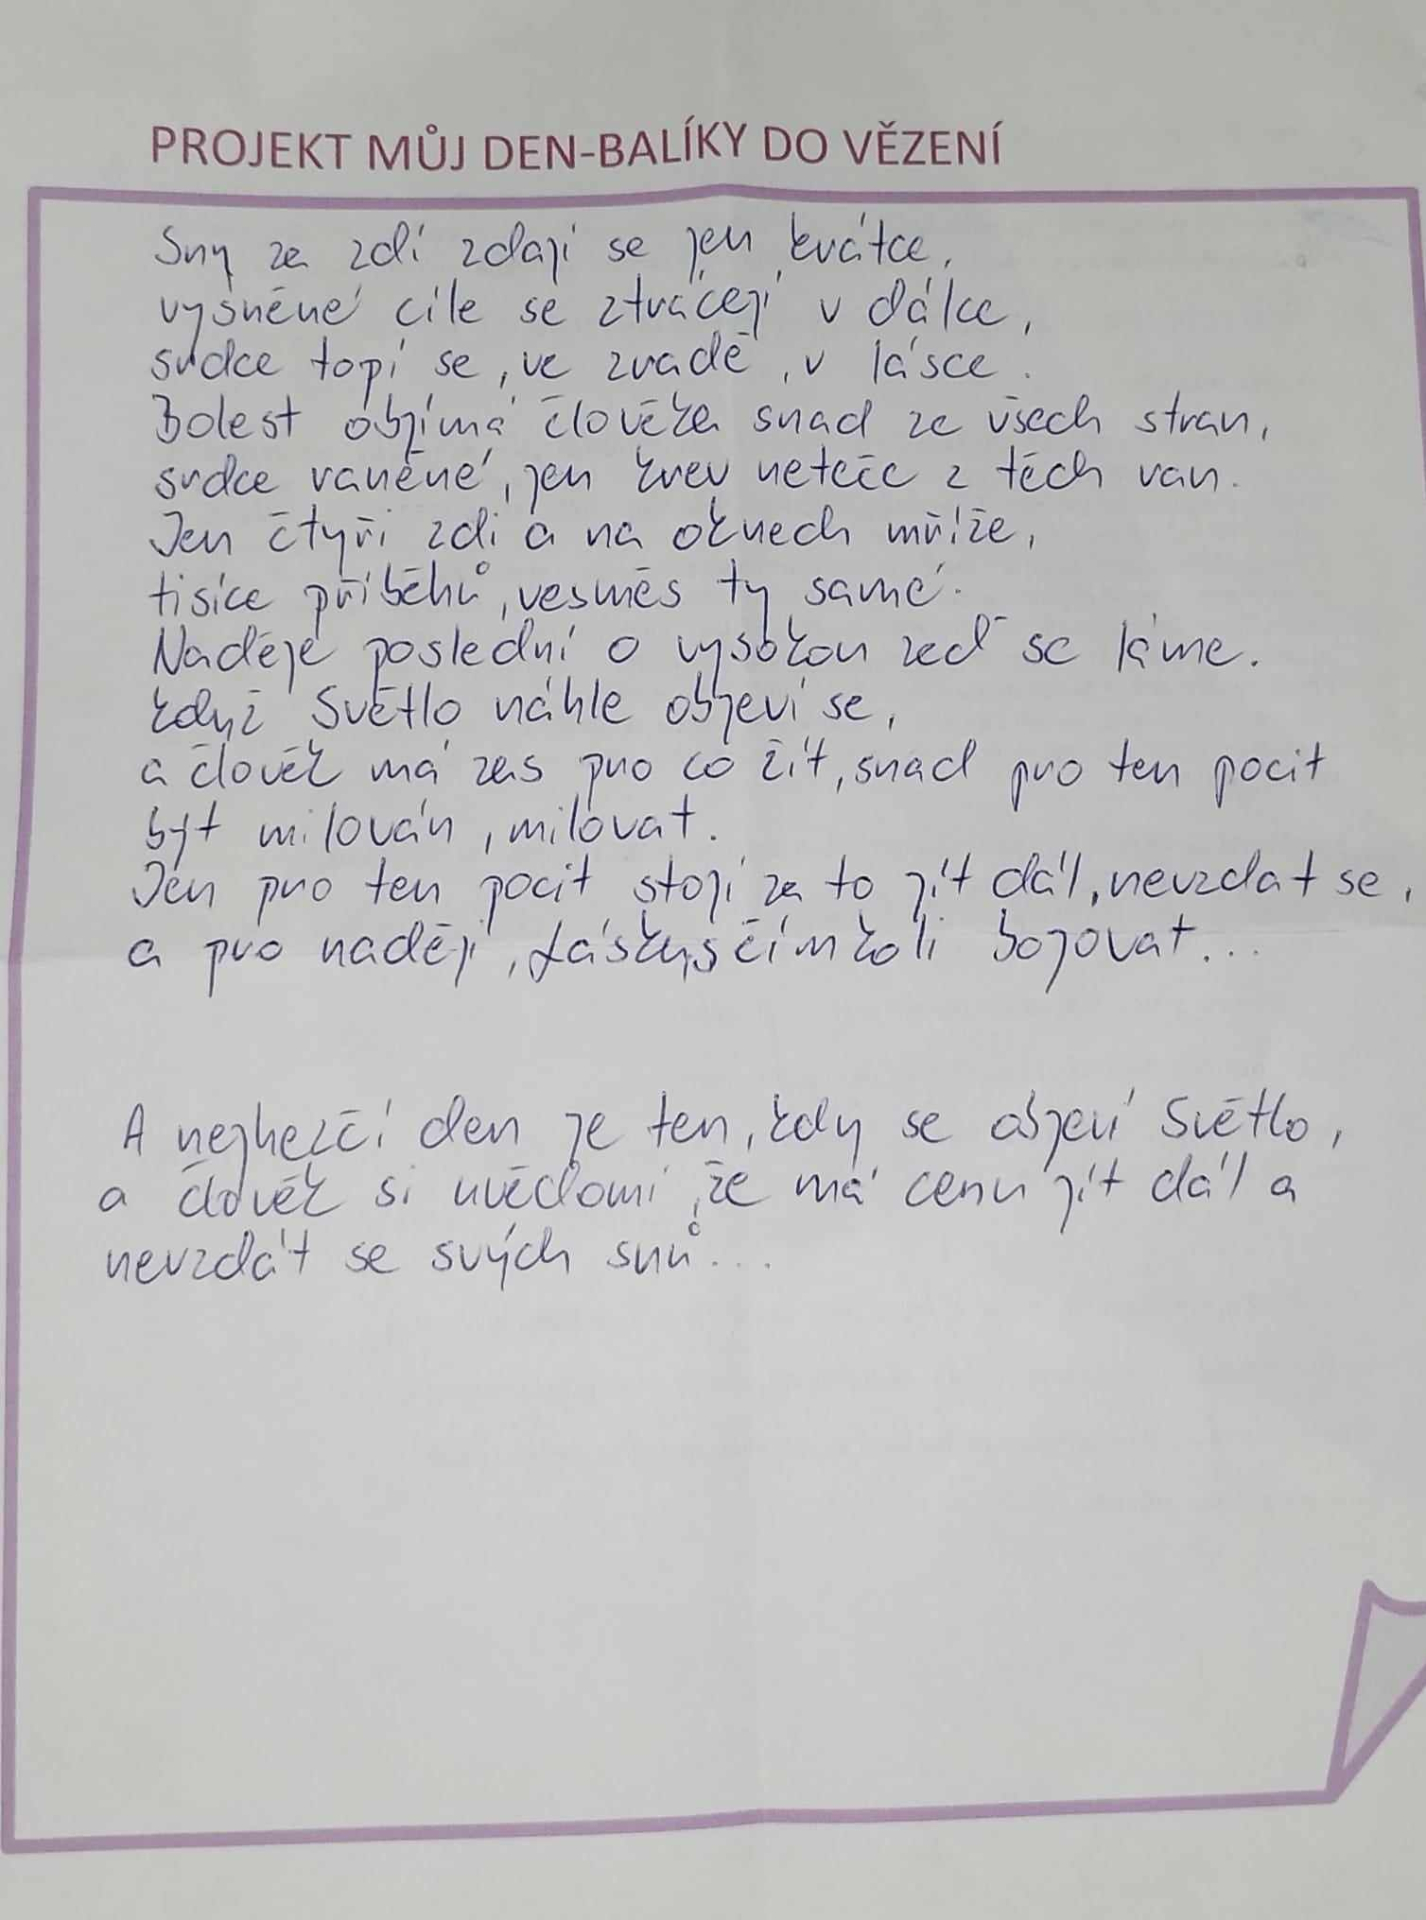 PROJEKT MŮJ DEN-BALÍKY DO VĚZENÍ
Sny za zdí zdají se jen krátce,
vysněné cíle se ztrácejí v dálce,
srdce topí se, ve zradě, v lásce.
Bolest objímá člověka snad ze všech stran,
srdce raněné, jen krev neteče z těch ran.
Jen čtyři zdi a na oknech mříže,
tisíce příběhů, vesměs ty samé.
Naděje poslední o vysokou zeď se láme.
Když Světlo náhle objeví se,
a člověk má zas pro co žít, snad pro ten pocit
být milován, milovat.
Jen pro ten pocit stojí za to jít dál, nevzdat se,
a pro naději, Lásku s čímkoli bojovat...
A nejhezčí den je ten, kdy se objeví Světlo,
a člověk si uvědomí, že má cenu jít dál a
nevzdát se svých snů...